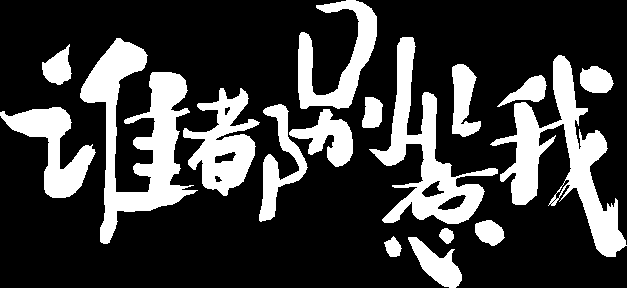 谁都别惹我